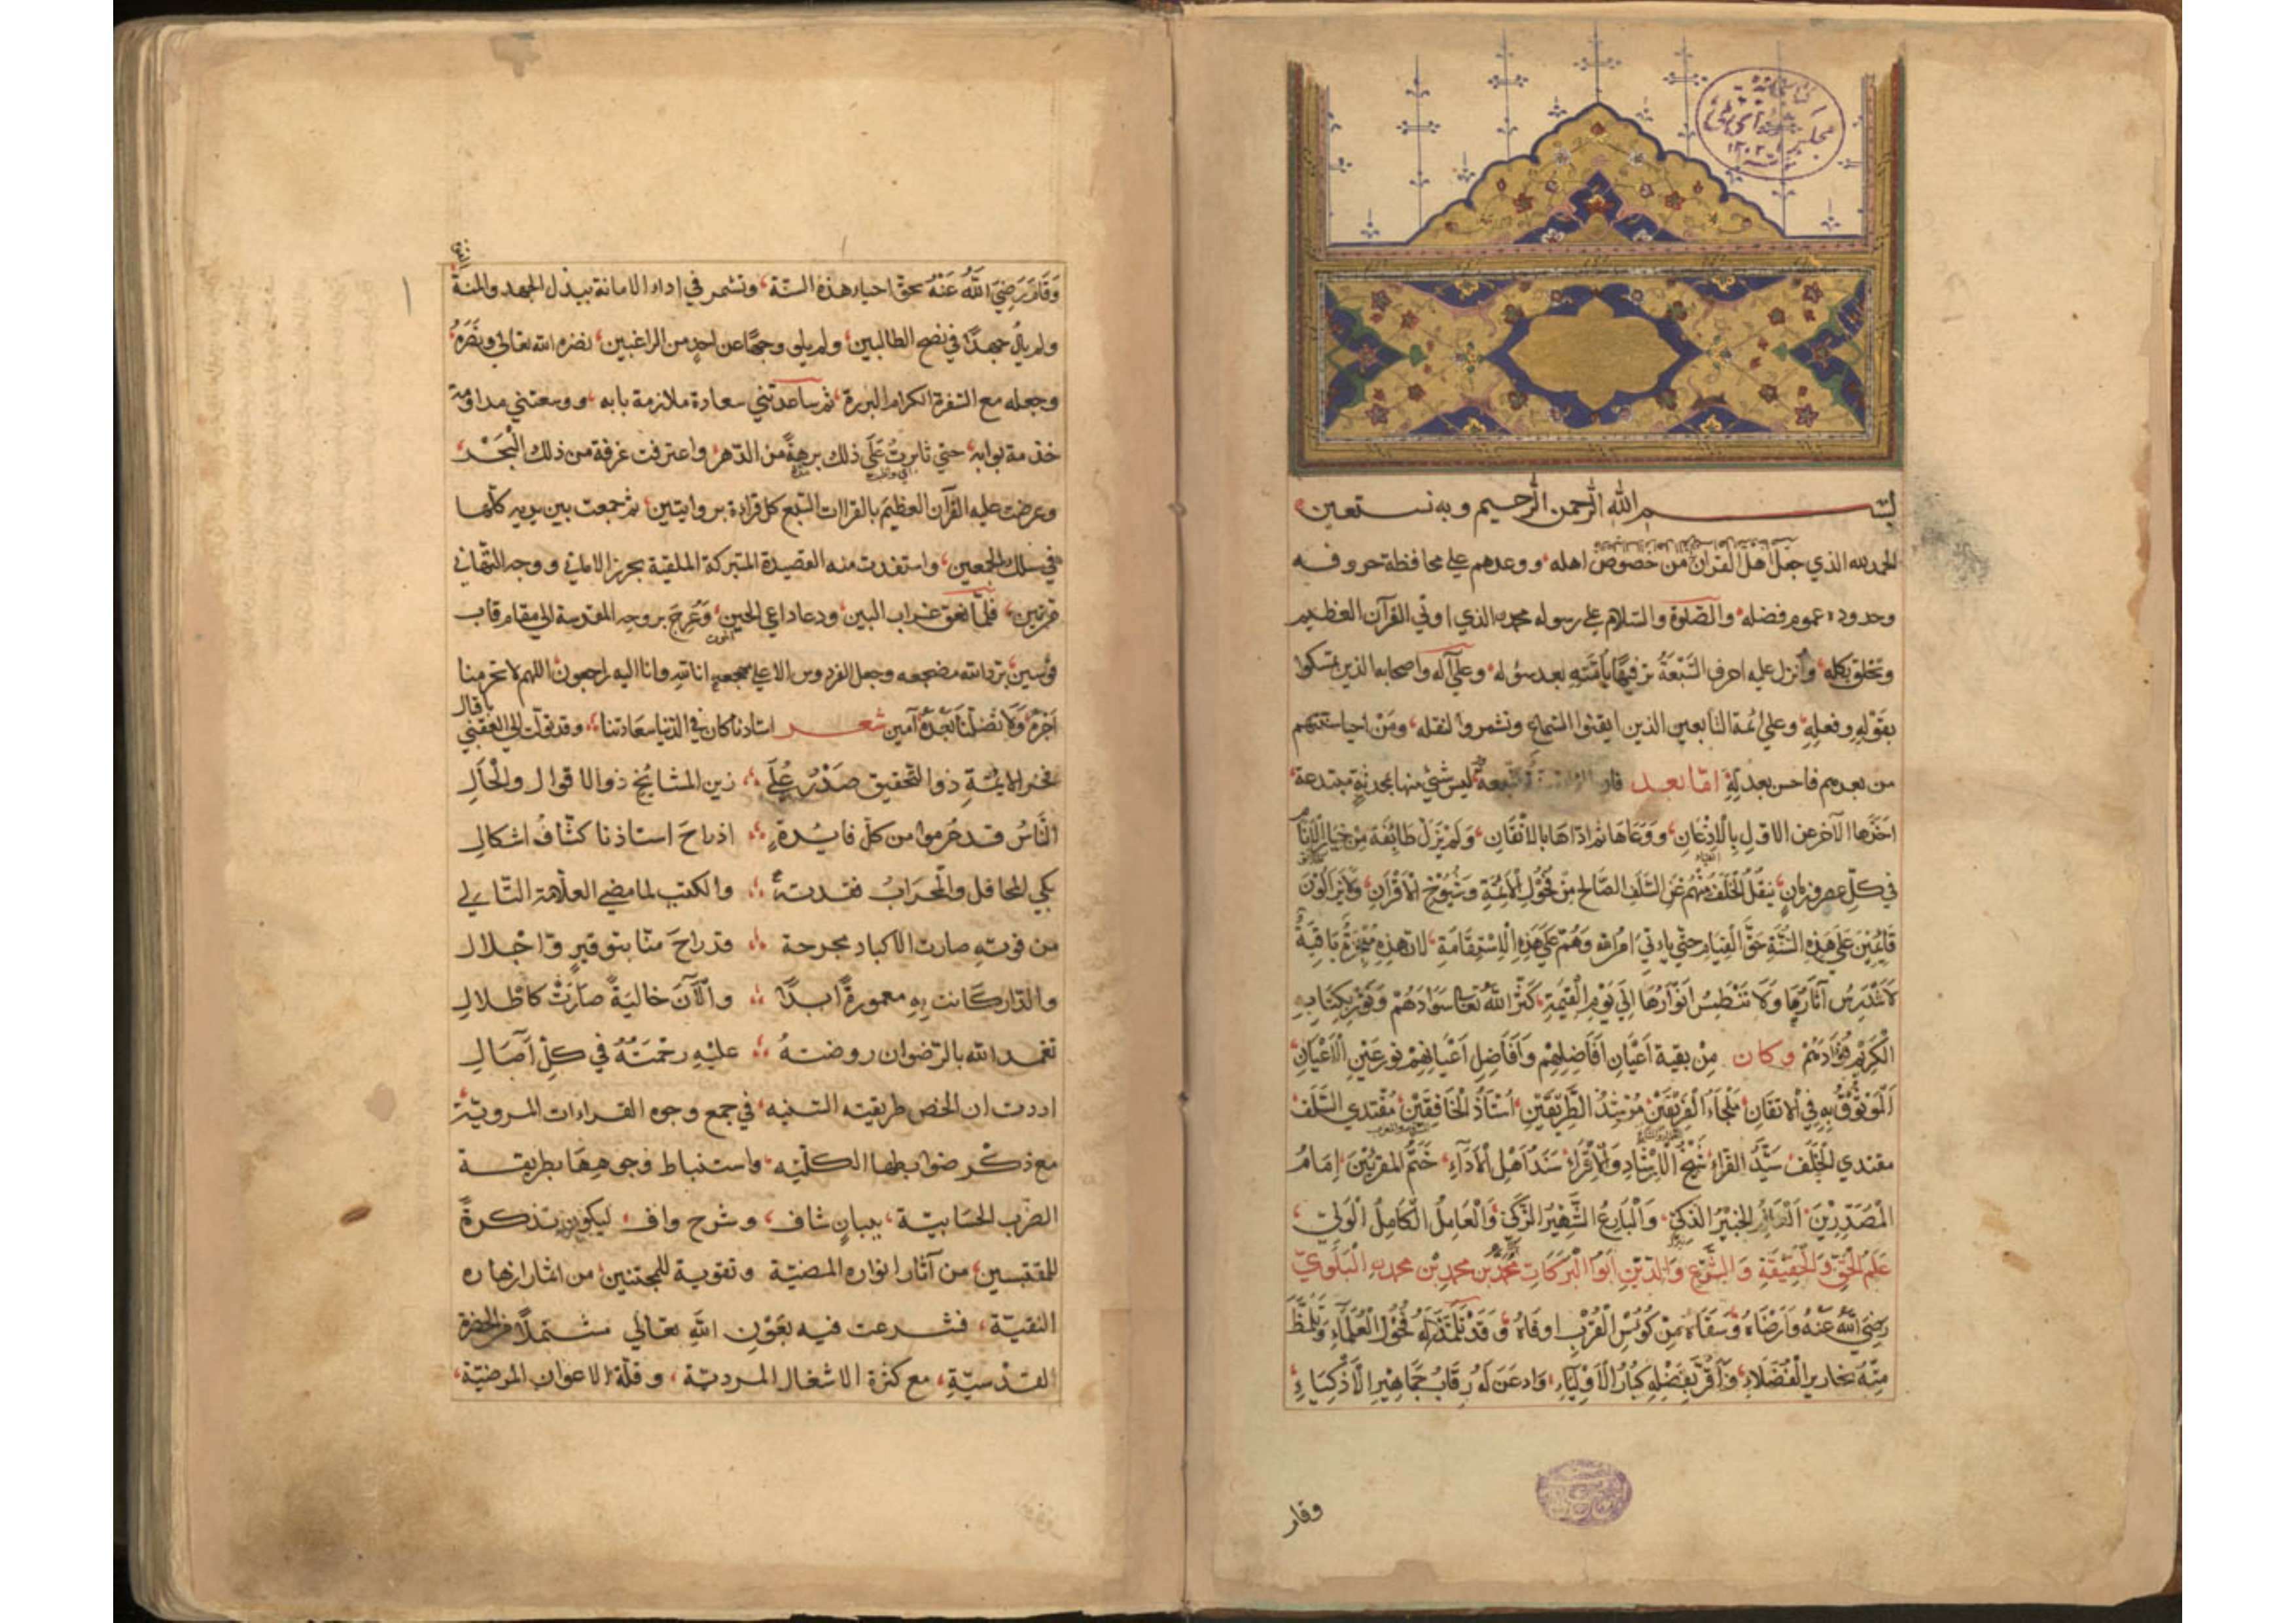 بسم الله الرحمن الرحيم وبه نستعين
الحمد لله الذي جعل اهل القرآن من خصوص اهله، ووعدهم علي محافظة حروفه
وحدوده عموم فضله، والصلوة والسلام علي رسوله محمد الذي اوتي القرآن العظيم
وتخلق بكله، وأنزل عليه احرف السَّبْعَةُ ترفيهًا بأمّته بعد سؤله، وعلي آله واصحابه الذين تمسكوا
بقَوْلِهِ وفعلِهِ، وعلي ائمة التابعين الذين ايقنوا السّماع وتشمروا لنقله، ومَنْ احيا سنتهم
من بعدهم فاحسن بعدلِهِ امّا بعد فان ليس شيْ منها بمحدثةٍ مبتدعة،
اخَذَها الآخر عن الاوّلِ بِالْاِذْعَانِ، ووَعَاهَا ثم ادّاهَا بالاتْقَانِ، وَلَمْ يَزَلْ طَائِفَة مِنْ خيارِ
في كلّ عصر وزمانٍ، يَنْقُلُ الْخَلَفُ مِنْهُمْ عَنِ السَّلَفِ الصَّالح مِنْ فُحُولِ الْاَئِمَّةِ وَشُيُوْخِ الْاَقْرَانِ، وَلَايَزَالُوْنَ
قَائِمِيْنَ عَلَي هَذِهِ السُّنَّةِ حَقَّ الْقِيَامِ حتّي ياْتيَ امْرُ الله وَهُمْ عَلَي هَذِهِ الْاِسْتِقَامَةِ، لان هذِهِ مُعْجِزَةٌ بَاقِيَةٌ
لَاتَنْدَرِسُ آثَارُهَا وَلَا تَنْطَمِسُ اَنْوَارُهَا اِلَي يَوْمِ الْقِيٰمَةِ، كَثَّرَ اللهُ تعَالَي سَوَادَهُمْ وَنَوَّرَ بِكِتَابِهِ
الْكَرِيْمِ فُؤَادَهُمْ وكان مِنْ بقية اَعْيَانِ اَفَاضِلِهِمْ وَاَفَاضِلِ اَعْيَانِهِمْ نورعَيْنِ الْاَعْيَانِ
اَلْمَوْثُوْقُ بِهِ فِي الْاتقَانِ، مَلْجَاءُ الْفَرِيْقَيْنِ، مُرْشِدُ الطَّرِيْقَيْنِ، اُسْتَاذُ الْخَافِقَيْنِ، مُقْتَدي السَّلَف
مقتدي الْخَلَف، سَيِّدُ القرّاء، نَهْجُ الْاِرْشَادِ وَالْاِقْرَاء، سَنَدُ اَهْلِ الْاَدَآءِ، خَتْمُ المقرِئيْنَ، اِمَامُ
الْمُصَدِّرِيْنَ، الخبيْرُ الذكيّ، وَالْبَارِعُ الشَّهِيْرُ الزَّكيّ، وَالْعَامِلُ الْكَامِلُ الْوَلِيّ،
عَلَمُ الْحَقِّ وَالْحَقِيْقَةِ وَالشَّرْعِ وَالدِّيْنِ اَبُوْ الْبَرَكَاتِ مُحَمَّدُ بْنُ محمدِ بْن محمدٍ الْبَلَوِيّ
رَضِيَ اللهُ عَنْهُ وَاَرْضَاهُ وَسَقَاهُ مِنْ كُؤُسِ الْقُرْبِ اوفَاهُ، وَقَدْ تَلَمَّذَ لَهُ فُحُوْلُ الْعُلَمَاءِ وَتَلَمَّظَ
مِنْهُ نحَاريرُ الْفُضَلَاءِ، وَاَقَرَّ بِفَضْلِهِ كِبَارُ الْاَوْلِيَاءِ، وَاذعَنَ لَهُ رِقَابُ جَمَاهِيْرِ الْاَذْكِيَاءِ،
وقام
وَقَامَ رَضِيَ اللهُ عَنْهُ بحقّ احياء هذه السنّة، وتشمر في اداء الامانة ببذل الجهد والمنة
ولم يألُ جهدًا في نصح الطالبين، ولم يلوِ وجهًا عن احدٍ من الراغبين، نضره الله تعالي ونَصَرَهُ
وجعله مع السّفرة الكرام البررة، ثم ساعدتني سعادة ملازمة بابه، ووسعتني مداومة
خدمة بوابه، حتي ثابرتُ عَلَي ذلك برهةً من الدّهر، واغترفت غرفة من ذلك الْبَحْر،
وعرضت عليه القرآن العظيم بالقراات السّبع كل قراءة بروايتين، ثم جمعت بين يديه كلّها
في سلك الجمعين، واستفدت منه القصيدة المتبركة الملقبة بحرز الاماني ووجه التّهاني
مرتين، فلمّا نعق غراب البين، ودعا داعي الحين، وَعُرِجَ بروحِه المقدسة الي مقام قاب
قوسين، برّد الله مضجعه وجعل الفردوس الاعلي مهجعه، انا لله وانا اليه راجعون، اللهم لا تحرمنا
اَجْرَهُ وَلَا تضلّنا بَعْدَهُ آمين شعر استاذنا كان في الدّنيا سعادتنا
فخر الايمّةِ ذوالتّحقيق صَدْرُ عُلَي زين المشايخ ذوالاقوال والْحَالِ
النّاسُ قد حُرموا من كلّ فايدةٍ اذ راحَ استاذنا كشّافُ اشكالي
بكي المحافل والْمحرَابُ فقدته والكتب لما مضي العلّامة التّالي
من فوتهِ صارت الاكباد مجرحة قد راحَ منّا بتوقيرٍ وّاجْلال
والدّار كَانت بِهِ معمورةً ابدًا والْآنَ خاليَةً صَارَتْ كاَطْلالِ
تغمد الله بالرّضوان روضتهُ عليْهِ رحْمَتُهُ في كلّ آصَالِ
اردت ان الخص طريقته السّنيه، في جمع وجوه القراءات المرويّة،
مع ذكْر ضوابطها الكلّيّه، واستنباط وجوهِهَا بطريقة
الضّرب الحسَابيّة، ببيانٍ شاف، وشرح واف، ليكون تذكرةً
للمقتبسين، من آثار انواره المضيّة وتقوية للمجتنين، من اثمار ازهاره
النقيّة، فشرعت فيه بعَوْنِ اللهِ تعالي
القدْسيّةِ، مع كثرة الاشغال المرديّة، وقلّة الاعوان المرضيّة،